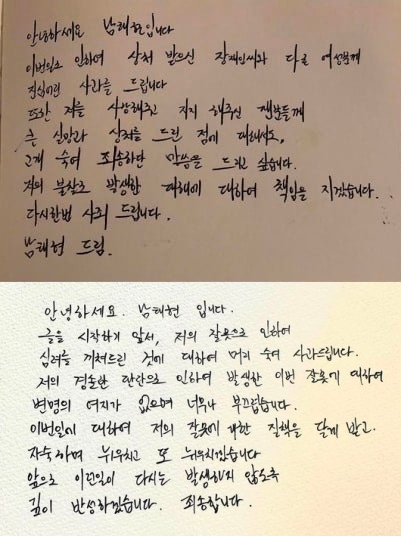 안녕하세요 남태현입니다
이번일로 인하여 상처 받으신 장재인씨와 다른 여성분께
진심어린 사과를 드립니다
또한 저를 사랑해주고 지지 해주신 팬분들께
큰 실망과 상처를 드린 점에 대해서도,
고개 숙여 죄송하단 말씀을 드리고 싶습니다.
저의 불찰로 발생한 피해에 대하여 책임을 지겠습니다.
다시한번 사죄 드립니다.
남태현 드림.
안녕하세요. 남태현 입니다.
글을 시작하기 앞서, 저의 잘못으로 인하여
심려를 끼쳐드린 것에 대하여 머리 숙여 사과드립니다.
저의 경솔한 판단으로 인하여 발생한 이번 잘못에 대하여
변명의 여지가 없으며 너무나 부끄럽습니다.
이번일에 대하여 저의 잘못에 대한 질책을 달게 받고.
자숙하며 뉘우치고 또 뉘우치겠습니다
앞으로 이런일이 다시는 발생하지 않도록
깊이 반성하겠습니다. 죄송합니다.